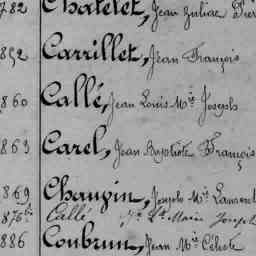 782 Chatelet, Jean Juliac Pier
852 Carrillet, Jean François
860 Callé, Jean Louis Mie Joseph
863 Carel, Jean Baptiste François
869 Chaupin, Joseph Mie Laurent
876 bis Callé Marie Joseph
886 Conbrun, Jean Mie Céleste